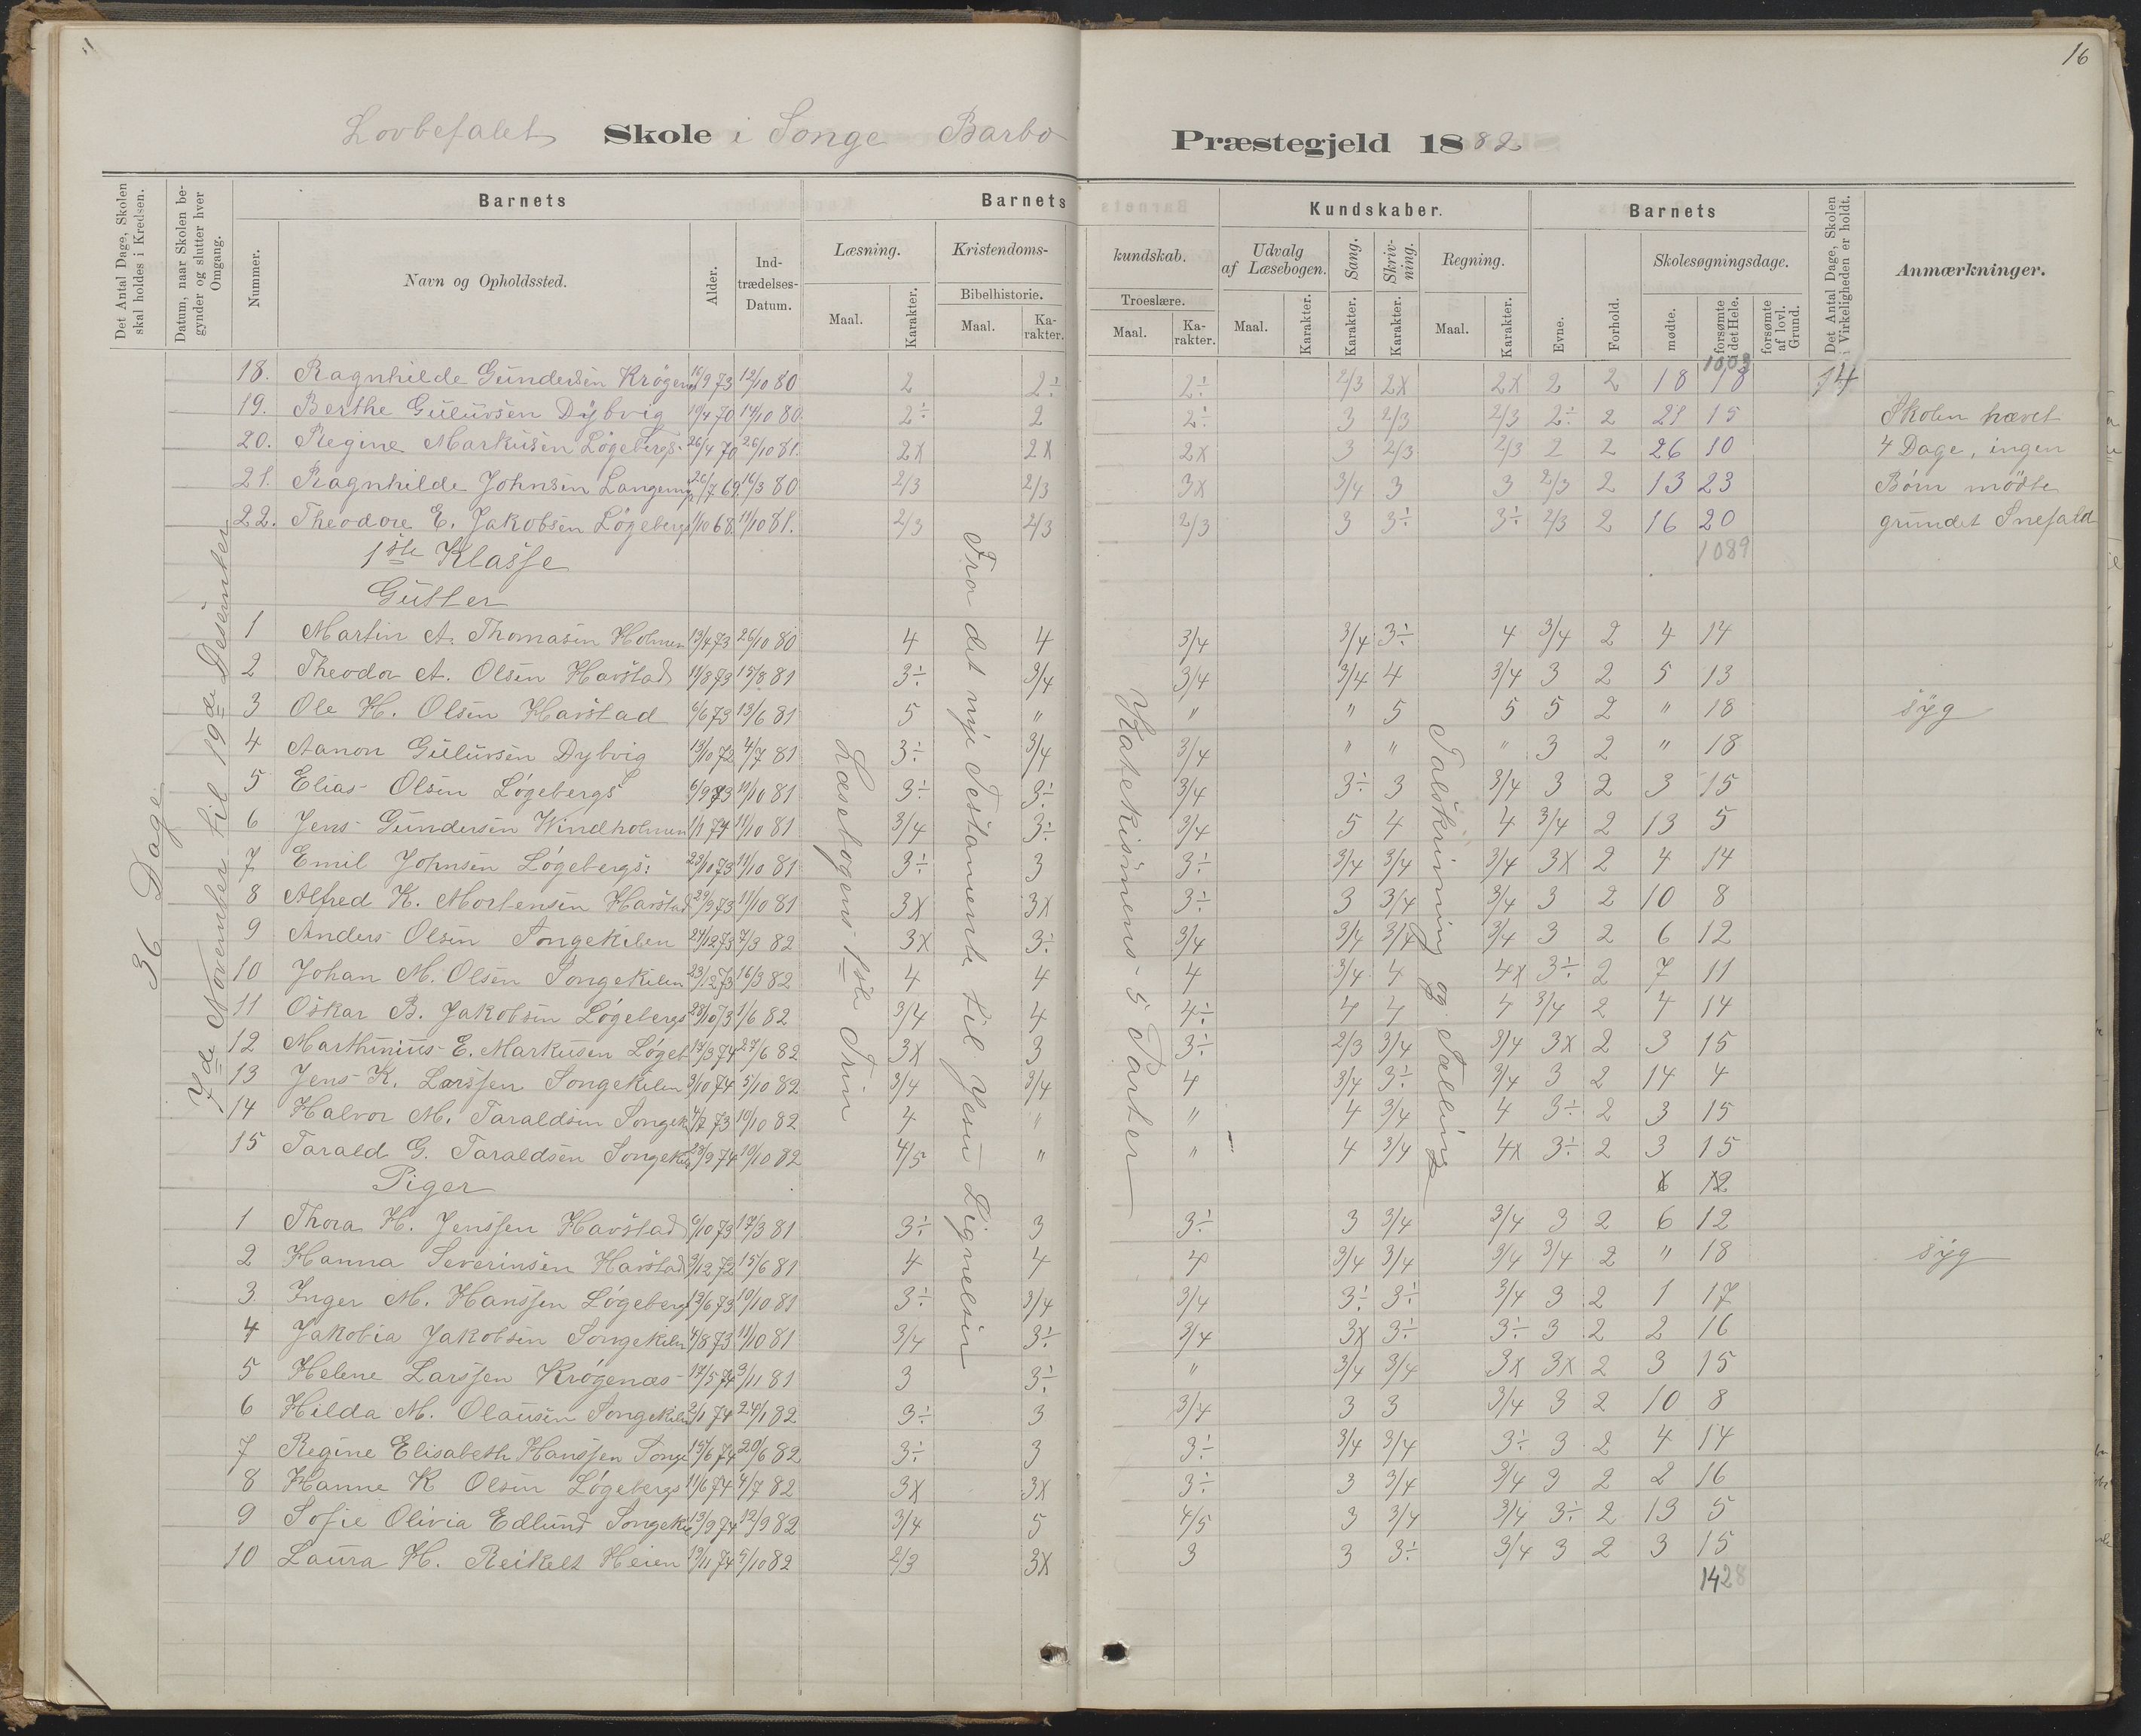 16
Lovbefalet Skole i Songe Barbo Præstegjeld 1882
Det Antal Dage, Skolen skal holdes i Kredsen.
Datum, naar Skolen begynder og slutter hver Omgang.
Barnets
Barnets
Kundskaber.
Barnets
Det Antal Dage, Skolen i Virkeligheden er holdt.
Anmærkninger.
Nummer.
Navn og Opholdssted.
Alder.
Indtrædelses-Datum.
Læsning.
Kristendoms-
kundskab.
Udvalg af Læsebogen.
Sang.
Skrivning.
Regning.
Evne.
Forhold.
Skolesøgningsdage.
Bibelhistorie.
Troeslære.
Maal. Karakter. Maal. Karakter. Maal. Karakter. Maal. Karakter. Karakter. Karakter. Maal. Karakter.
mødte. forsømte i det Hele. forsømte af lovl. Grund.
1003
18. Ragnhilde Gundersen Krøgenæs 16/9 73 12/10 80 2 2÷ 2÷ 2/3 2x 2x 2 2 18 18 14
19. Berthe Guluvsen Dybvig 10/4 70 14/10 80 2÷ 2 2÷ 3 2/3 2/3 2÷ 2 21 15 Skolen hævet
20. Regine Markusen Løgebergs- 26/4 70 26/10 81. 2x 2x 2x 3 2/3 2/3 2 2 26 10 4 Dage, ingen
21. Ragnhilde Johnsen 20/7 69 16/3 80 2/3 2/3 3x 3/4 3 3 2/3 2 13 23 Børn mødte
22. Theodore E. Jakobsen Løgebergs 1/10 68 11/10 81. 2/3 2/3 2/3 3 3÷ 3÷ 2/3 2 16 20 grundet Snefald
1089
1ste Klasse
Gutter
1 Martin A. Thomasen Holmen 13/4 73 26/10 80 4 4 3/4 3/4 3÷ 4 3/4 2 4 14
2 Theodor A. Olsen Havstad 11/8 73 15/8 81 3÷ 3/4 3/4 3/4 4 3/4 3 2 5 13
3 Ole H. Olsen Havstad 6/6 73 13/6 81 5 " " " 5 5 5 2 " 18 syg
4 Aanon Guluvsen Dybvig 13/10 72 4/7 81 3÷ 3/4 3/4 " " " 3 2 " 18
5 Elias Olsen Løgebergs 6/9 73 11/10 81 3÷ 3÷ 3/4 3÷ 3 3/4 3 2 3 15
6 Jens Gundersen Windholmen 1/1 74 11/10 81 3/4 3÷ 3/4 5 4 4 3/4 2 13 5
7 Emil Johnsen Løgebergs: 23/10 73 11/10 81 3÷ 3 3÷ 3/4 3/4 3/4 3x 2 4 14
8 Alfred K. Mortensen Havstad 29/9 73 11/10 81 3x 3x 3÷ 3 3/4 3/4 3 2 10 8
9 Anders Olsen Songekilen 24/12 73 7/3 82 3x 3÷ 3/4 3/4 3/4 3/4 3 2 6 12
10 Johan M. Olsen Songekilen 23/12 73 16/3 82 4 4 4 3/4 4 4x 3÷ 2 7 11
11 Oskar B. Jakobsen Løgebergs 23/10 73 1/6 82 3/4 4 4÷ 4 4 4 3/4 2 4 14
12 Marthinius E. Markusen Løgeb 17/3 74 27/6 82 3x 3 3÷ 2/3 3/4 3/4 3x 2 3 15
13 Jens K. Larssen Songekilen 3/10 74 5/10 82 3/4 3/4 4 3/4 3÷ 3/4 3 2 14 4
14 Halvor M. Taraldsen Songek 4/7 73 10/10 82 4 " " 4 3/4 4 3÷ 2 3 15
15 Tarald G. Taraldsen Songek 29/9 74 10/10 82 4/5 " " 4 3/4 4x 3÷ 2 3 15
Piger 6 12
1 Thora H. Jenssen Havstad 6/10 73 17/3 81 3÷ 3 3÷ 3 3/4 3/4 3 2 6 12
2 Hanna Severinsen Havstad 9/12 72 15/6 81 4 4 4 3/4 3/4 3/4 3/4 2 " 18 syg
3 Inger M. Hanssen Løgebergs 13/6 73 10/10 81 3÷ 3/4 3/4 3÷ 3÷ 3/4 3 2 1 17
4 Jakobia Jakobsen Songekilen 4/8 73 11/10 81 3/4 3÷ 3/4 3x 3÷ 3÷ 3 2 2 16
5 Helene Larssen Krøgenæs- 17/5 74 3/11 81 3 3÷ " 3/4 3/4 3x 3x 2 3 15
6 Hilda M. Olausen Songekilen 2/1 74 24/1 82 3÷ 3 3/4 3 3 3/4 3 2 10 8
7 Regine Elisabeth Hanssen Songe 15/6 74 20/6 82 3÷ 3 3÷ 3/4 3/4 3÷ 3 2 4 14
8 Hanne K Olsen Løgebergs 11/6 74 4/7 82 3x 3x 3÷ 3 3/4 3/4 3 2 2 16
9 Sofie Olivia Edlund Songek 13/9 74 12/9 82 3/4 5 4/5 3 3/4 3/4 3÷ 2 13 5
10 Laura H. Reikelt Heien 19/11 74 5/10 82 2/3 3x 3 3 3÷ 3/4 3 2 3 15
1428
36 Dage
7de November til 19de Desember
Læsebogens 1ste Trin
Fra det nye Testamente til Jesu Lignelser
Katekismens 5 Parter
Talskrivning og Tælling